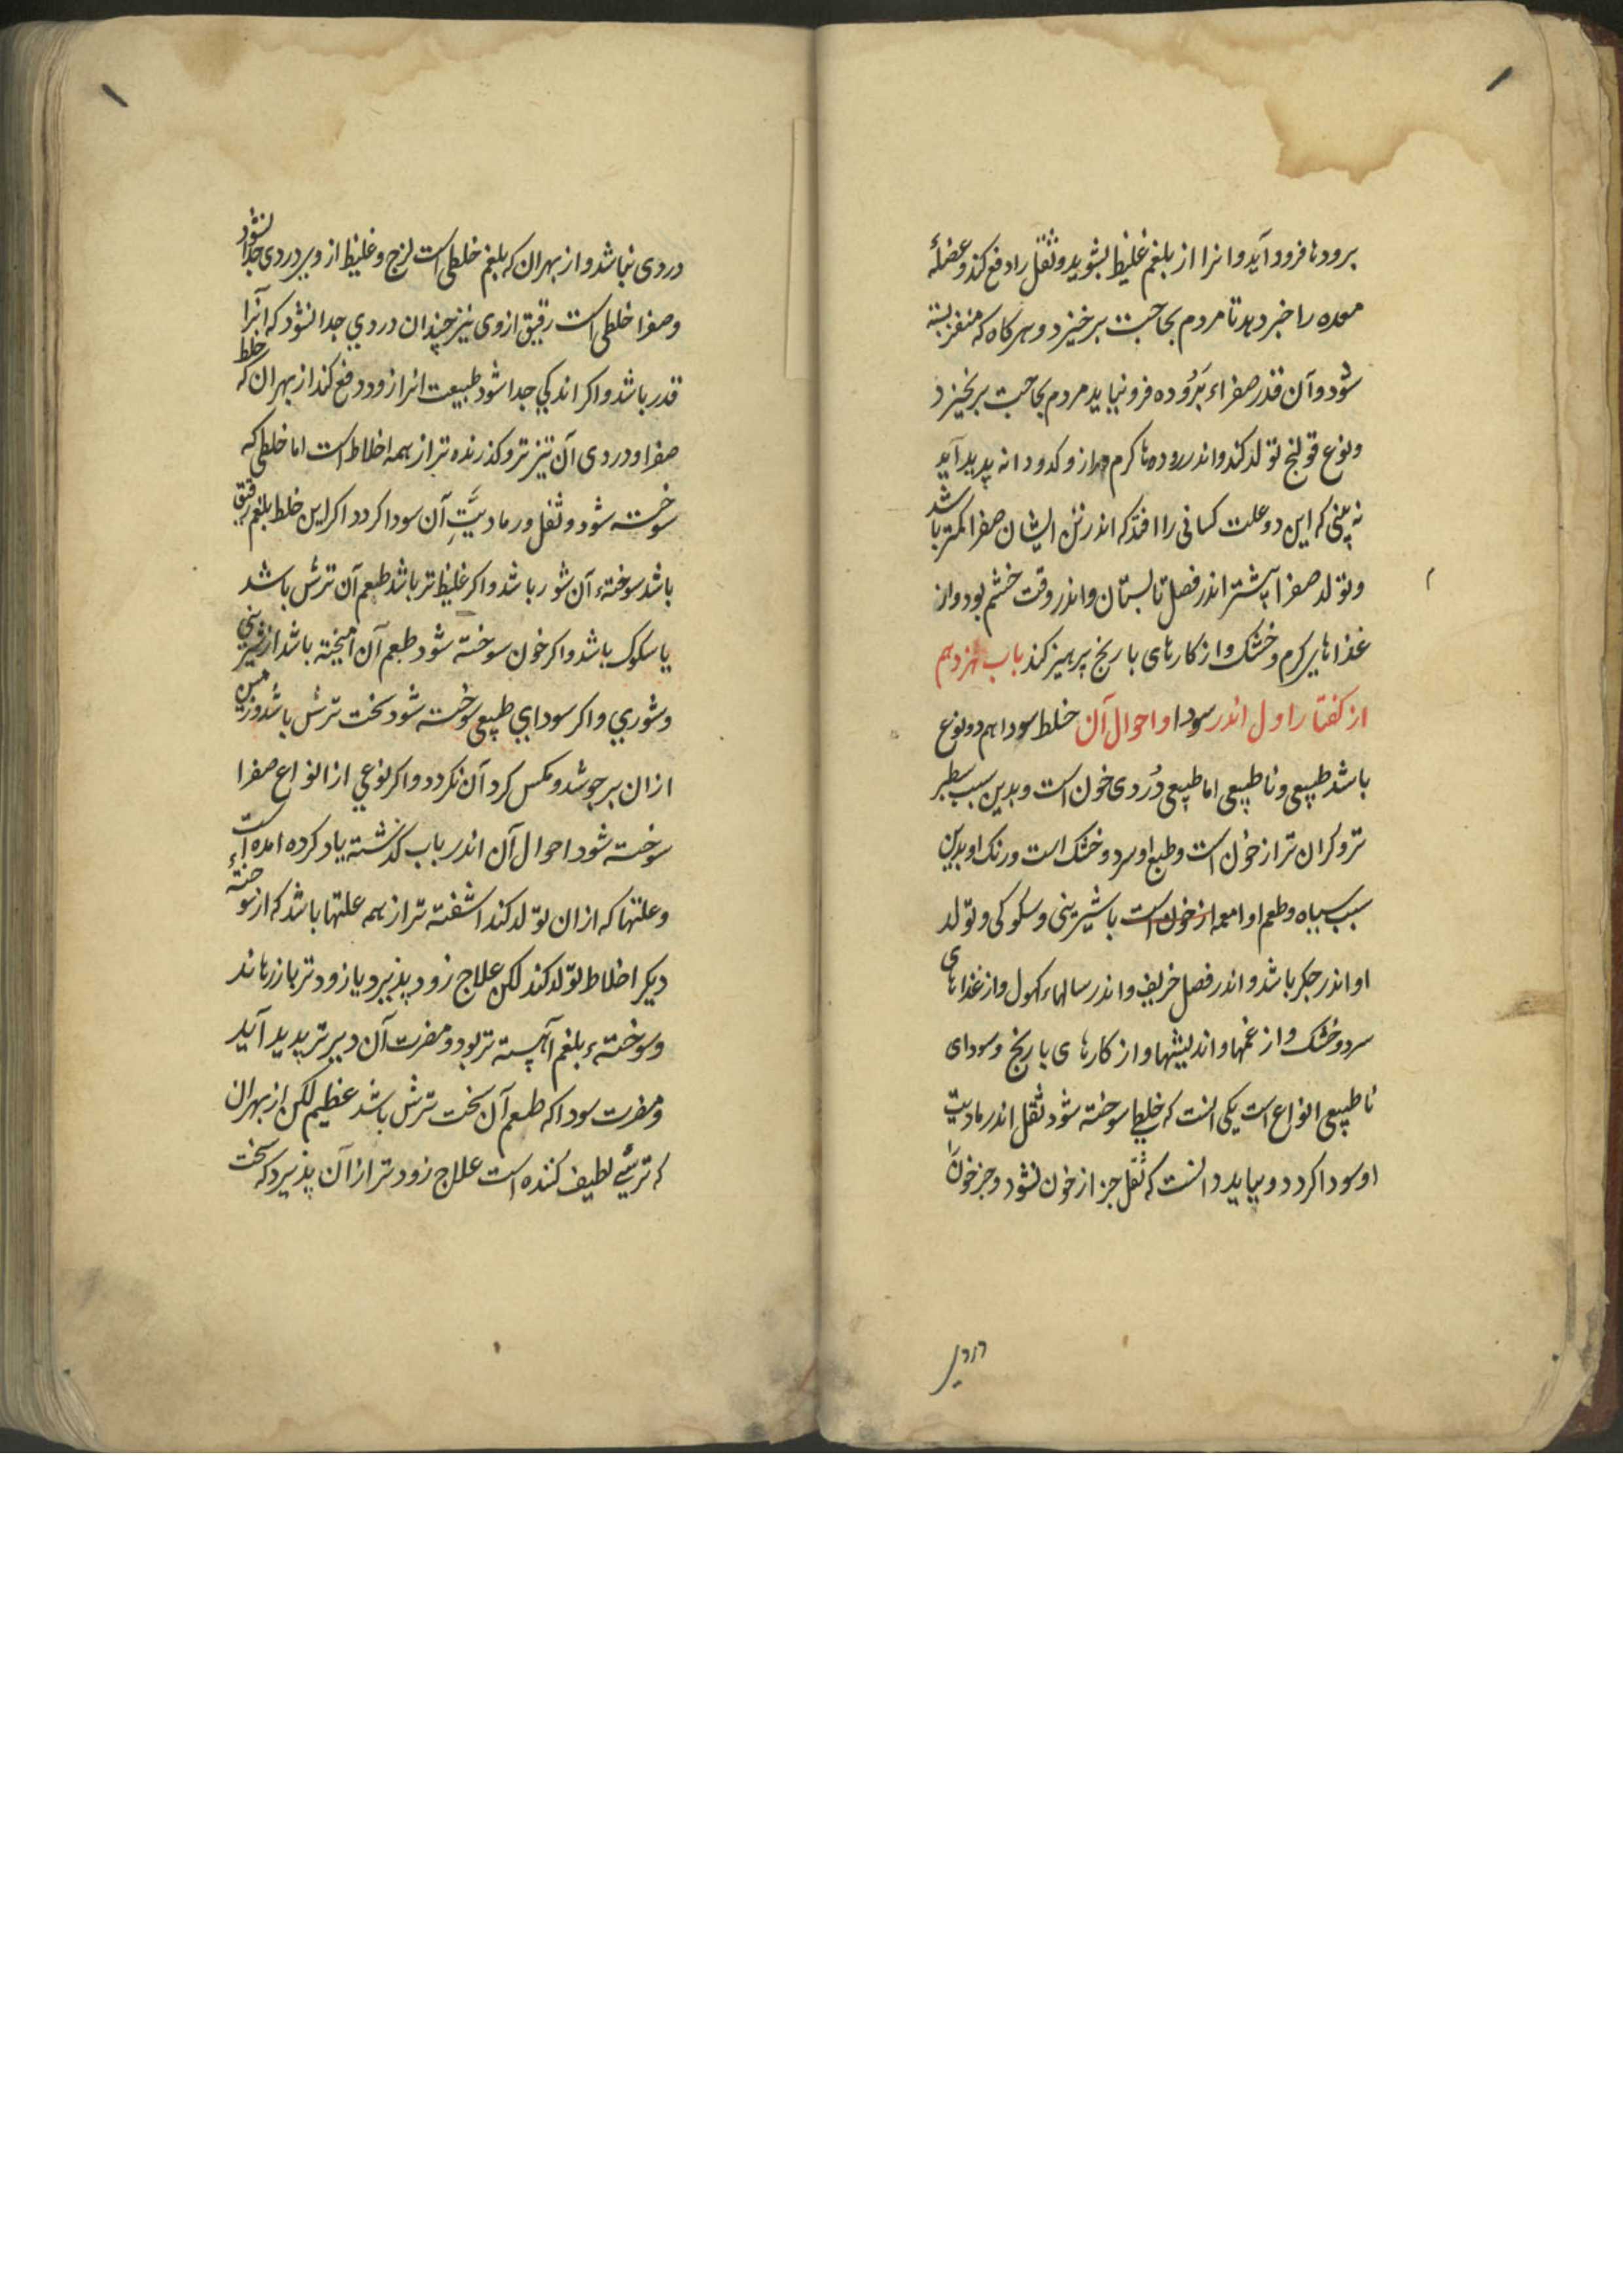 برودها فرود آید و انرا از بلغم غلیظ بشوید و ثفل را دفع کند و عضلهٔ
معده را خبر دهد تا مردم بحاجت برخیزد و هرکاه که منفذ بسته
شود و آن قدر صفراء برُوده فرو نیاید مردم بحاجت برنخیزد
و نوع قولنج تولد کند و اندر روده‌ها کرم دراز و کدودانه پدید آید
نه بینی که این دو علت کسانی را افتد که اندر تن ایشان صفرا کمتر باشد
و تولد صفرا بیشتر اندر فصل تابستان و اندر وقت خشم بود و از
غذاهای کرم و خشک و از کارهای با رنج پرهیز کند باب نهزدهم
از کفتار اول اندر سودا و احوال آن خلط سودا هم دو نوع
باشد طبیعی و ناطبیعی اما طبیعی دُردی خون است و بدین سبب سطبر
تر و کران تر از خون است و طبع او سرد و خشک است و رنک او بدین
سبب سیاه و طعم او امعه از خون است با شیرینی و سکوکی و تولد
او اندر جکر باشد و اندر فصل خریف و اندر سالهاء کهول و از غذاهای
سرد و خشک و از غمها و اندیشها و از کارهای با رنج و سودای
ناطبیعی انواع است یکی انست که خلطی سوخته شود ثفل اندر مادیت
او سودا کردد و بباید دانست که ثفل جز از خون نشود و جز خون
دردی نباشد و از بهر ان که بلغم خلطی است لزج و غلیظ از وی دردی جدا نشود
و صفرا خلطی است رقیق از وی نیز چندان دردی جدا نشود که آنرا
قدر باشد و اکر اندکی جدا شود طبیعت انرا زود دفع کند از بهر ان که خلط
صفرا و دردی آن تیزتر و کذرنده تر از همه اخلاط است اما خلطی که
سوخته شود و ثفل و رمادیَّتِ آن سودا کردد اکر این خلط بلغم رقیق
باشد سوختهٔ آن شور باشد و اکر غلیظ تر باشد طعم آن ترش باشد
یا سکوک باشد و اکر خون سوخته شود طعم آن آمیخته باشد از شیرینی
و شوری و اکر سودای طبیعی سوخته شود سخت ترش باشد و زمین
از ان بر جوشد و مکس کرد آن نکردد و اکر نوعی از انواع صفرا
سوخته شود احوال آن اندر باب کذشته یاد کرده امده است
و علتها که از ان تولد کند اشفته تر از همه علتها باشد که از سوختهٔ
دیکر اخلاط تولد کند لکن علاج زود پذیرد یا زودتر باز رهاند
و سوختهٔ بلغم آهسته تر بود و مضرت آن دیرتر پدید آید
و مضرت سودا که طعم آن سخت ترش باشد عظیم لکن از بهر ان
که ترشی لطیف کننده است علاج زودتر از آن پذیرد که سخت